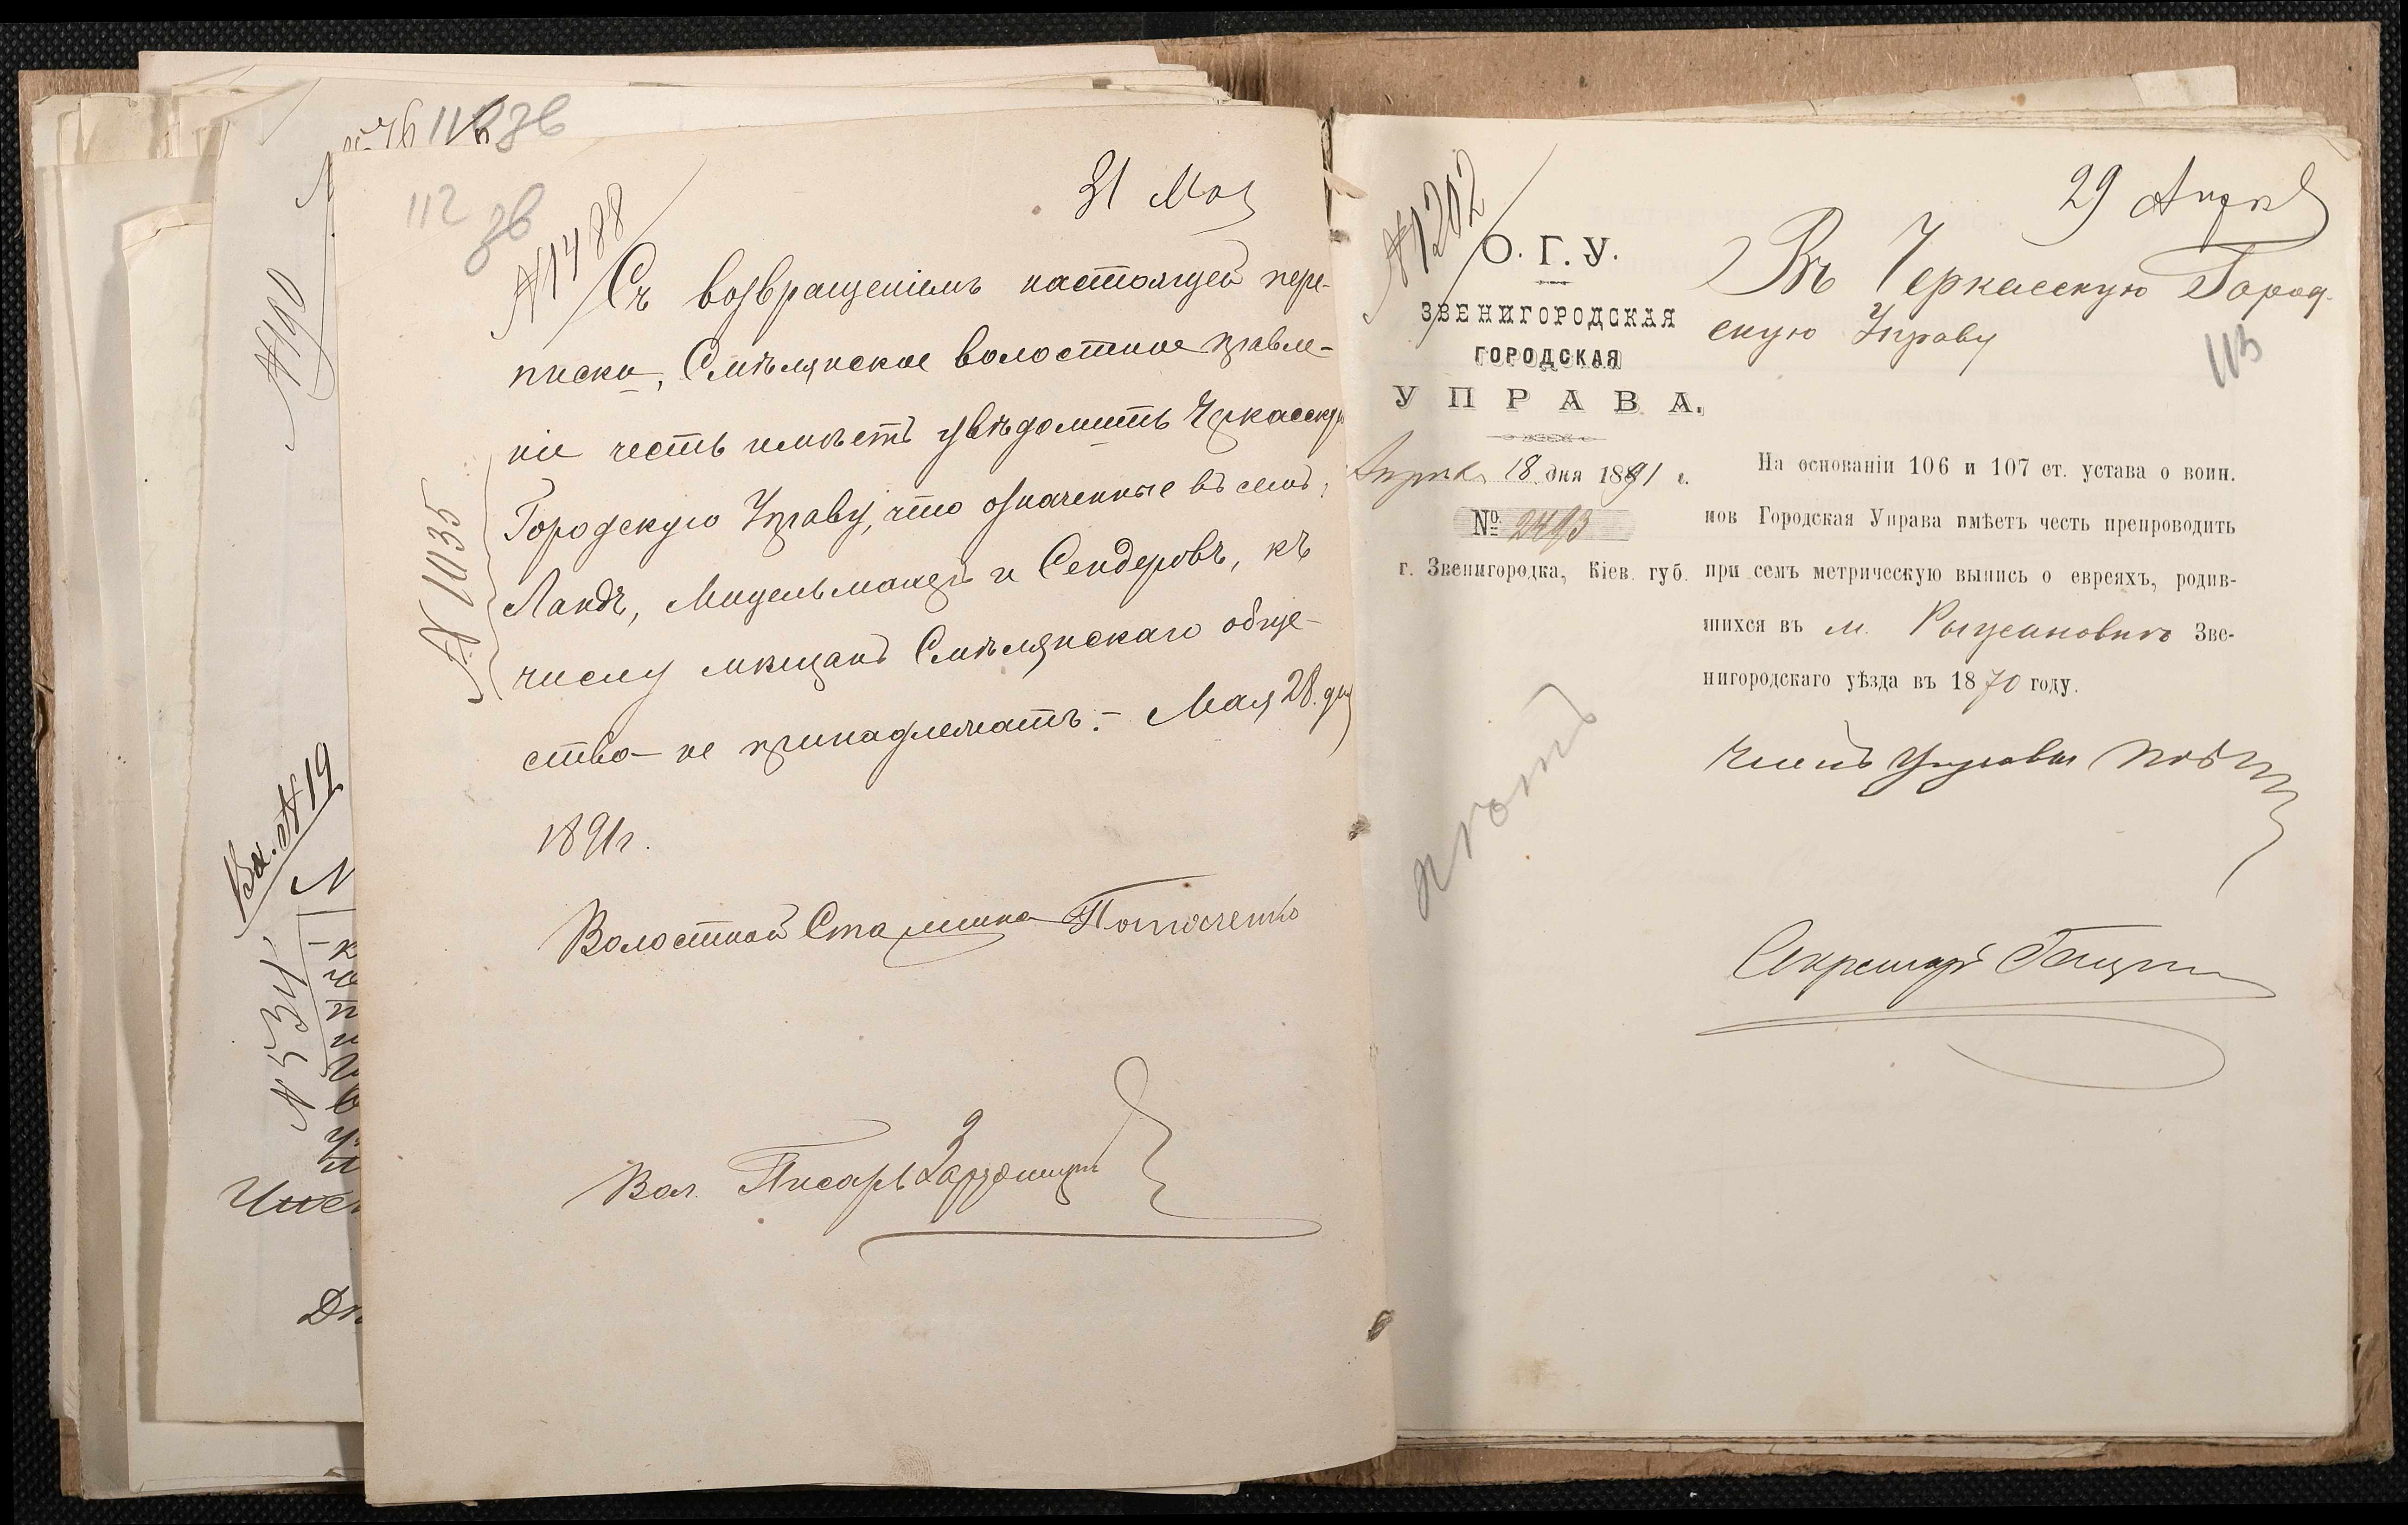 112 зв
31 Мая
№1488
Съ возвращеніемъ настоящей пере-
писки, Смѣлянское волостное правле-
ніе честь имѣетъ увѣдомить Черкасскую
Городскую Управу, что означенные въ семъ,
Ландъ, Мицельмахеръ и Сендеровъ, къ
числу мѣщанъ Смѣлянскаго обще-
ства не принадлежатъ.- Мая 28 дня
1891г.
№ 1035
Волостной Старшина
Вол. Писарь
№190
Вх. №19
№ 534
29 Апрѣля
№1202
О. Г. У.
ЗВЕНИГОРОДСКАЯ
ГОРОДСКАЯ
УПРАВА.
Апрѣля 18 дня 1891 г.
№ 2493
г. Звенигородка, Кіев. губ.
Въ Черкасскую Город-
скую Управу
113
На основаніи 106 и 107 ст. устава о воин.
пов Городская Управа имѣетъ честь препроводить
при семъ метрическую выпись о евреяхъ, родив-
шихся въ м. Рыжановкѣ Зве-
нигородскаго уѣзда въ 1870 году.
Членъ Управы
Секретарь